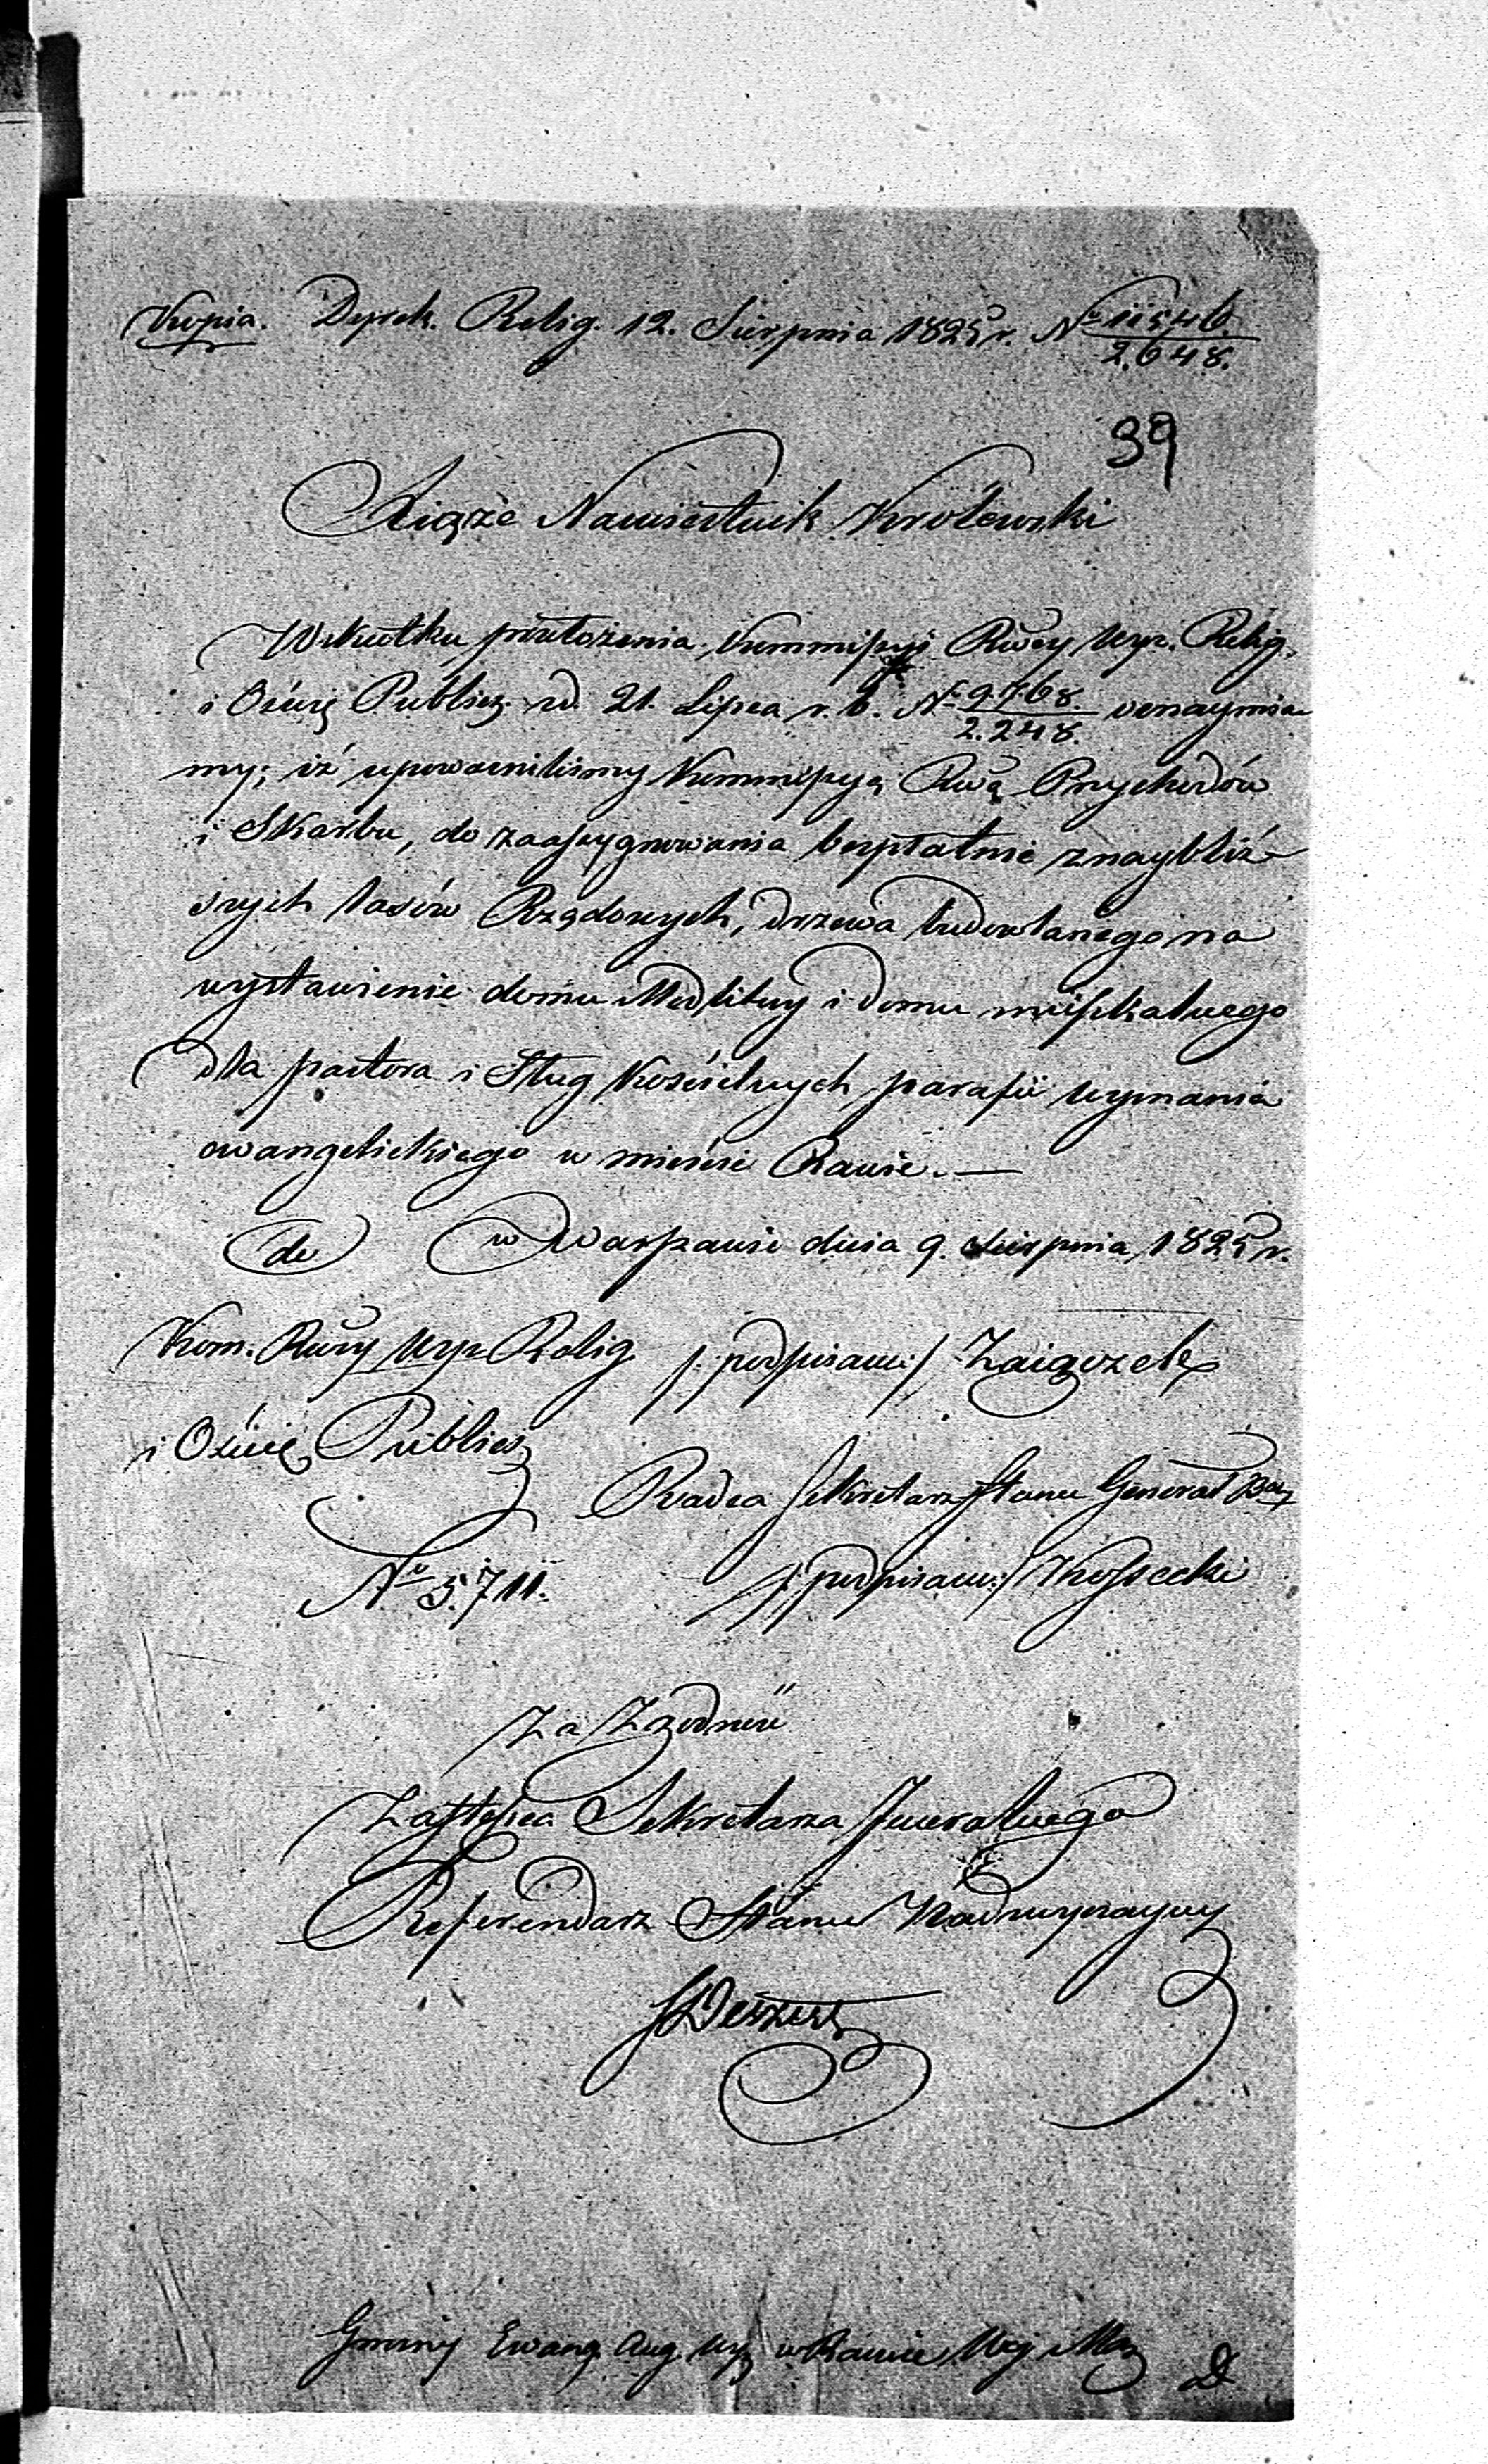 Kopia. Dyrek. Relig. 12. Sierpnia 1825 r. No 11546.
2.648.
39
Xiąże Namiestnik Królewski
W skutku przełożenia Kommissyi Rwey Wyz. Relig.
i Oświę Publicz. z d. 21. Lipca r. b. No 9768 oznaymia-
2.248.
my; iż upoważniliśmy Kommissyą Rwą Przychodów
i Skarbu, do zaassygnowania bezpłatnie z naybliż-
szych lasów Rządowych, drzewa budowlanego na
wystawienie domu Modlitwy i domu mieszkalnego
dla pastora i Sług Kościelnych parafii wyznania
ewangelickiego w mieście Rawie. —
do w Warszawie dnia 9. Sierpnia 1825 r.
Kom. Rwey Wyz Relig /: podpisano :/ Zaiączek
i Oświę Publicz
Radca Sekretarz Stanu Generał Bry
No 5.711. /: podpisano :/ Kossecki
Za Zgodność
Zastępca Sekretarza Jeneralnego
Referendarz Stanu Nadzwyczayny
Gminy Ewang. Aug. Wyz w Rawie Woj Maz